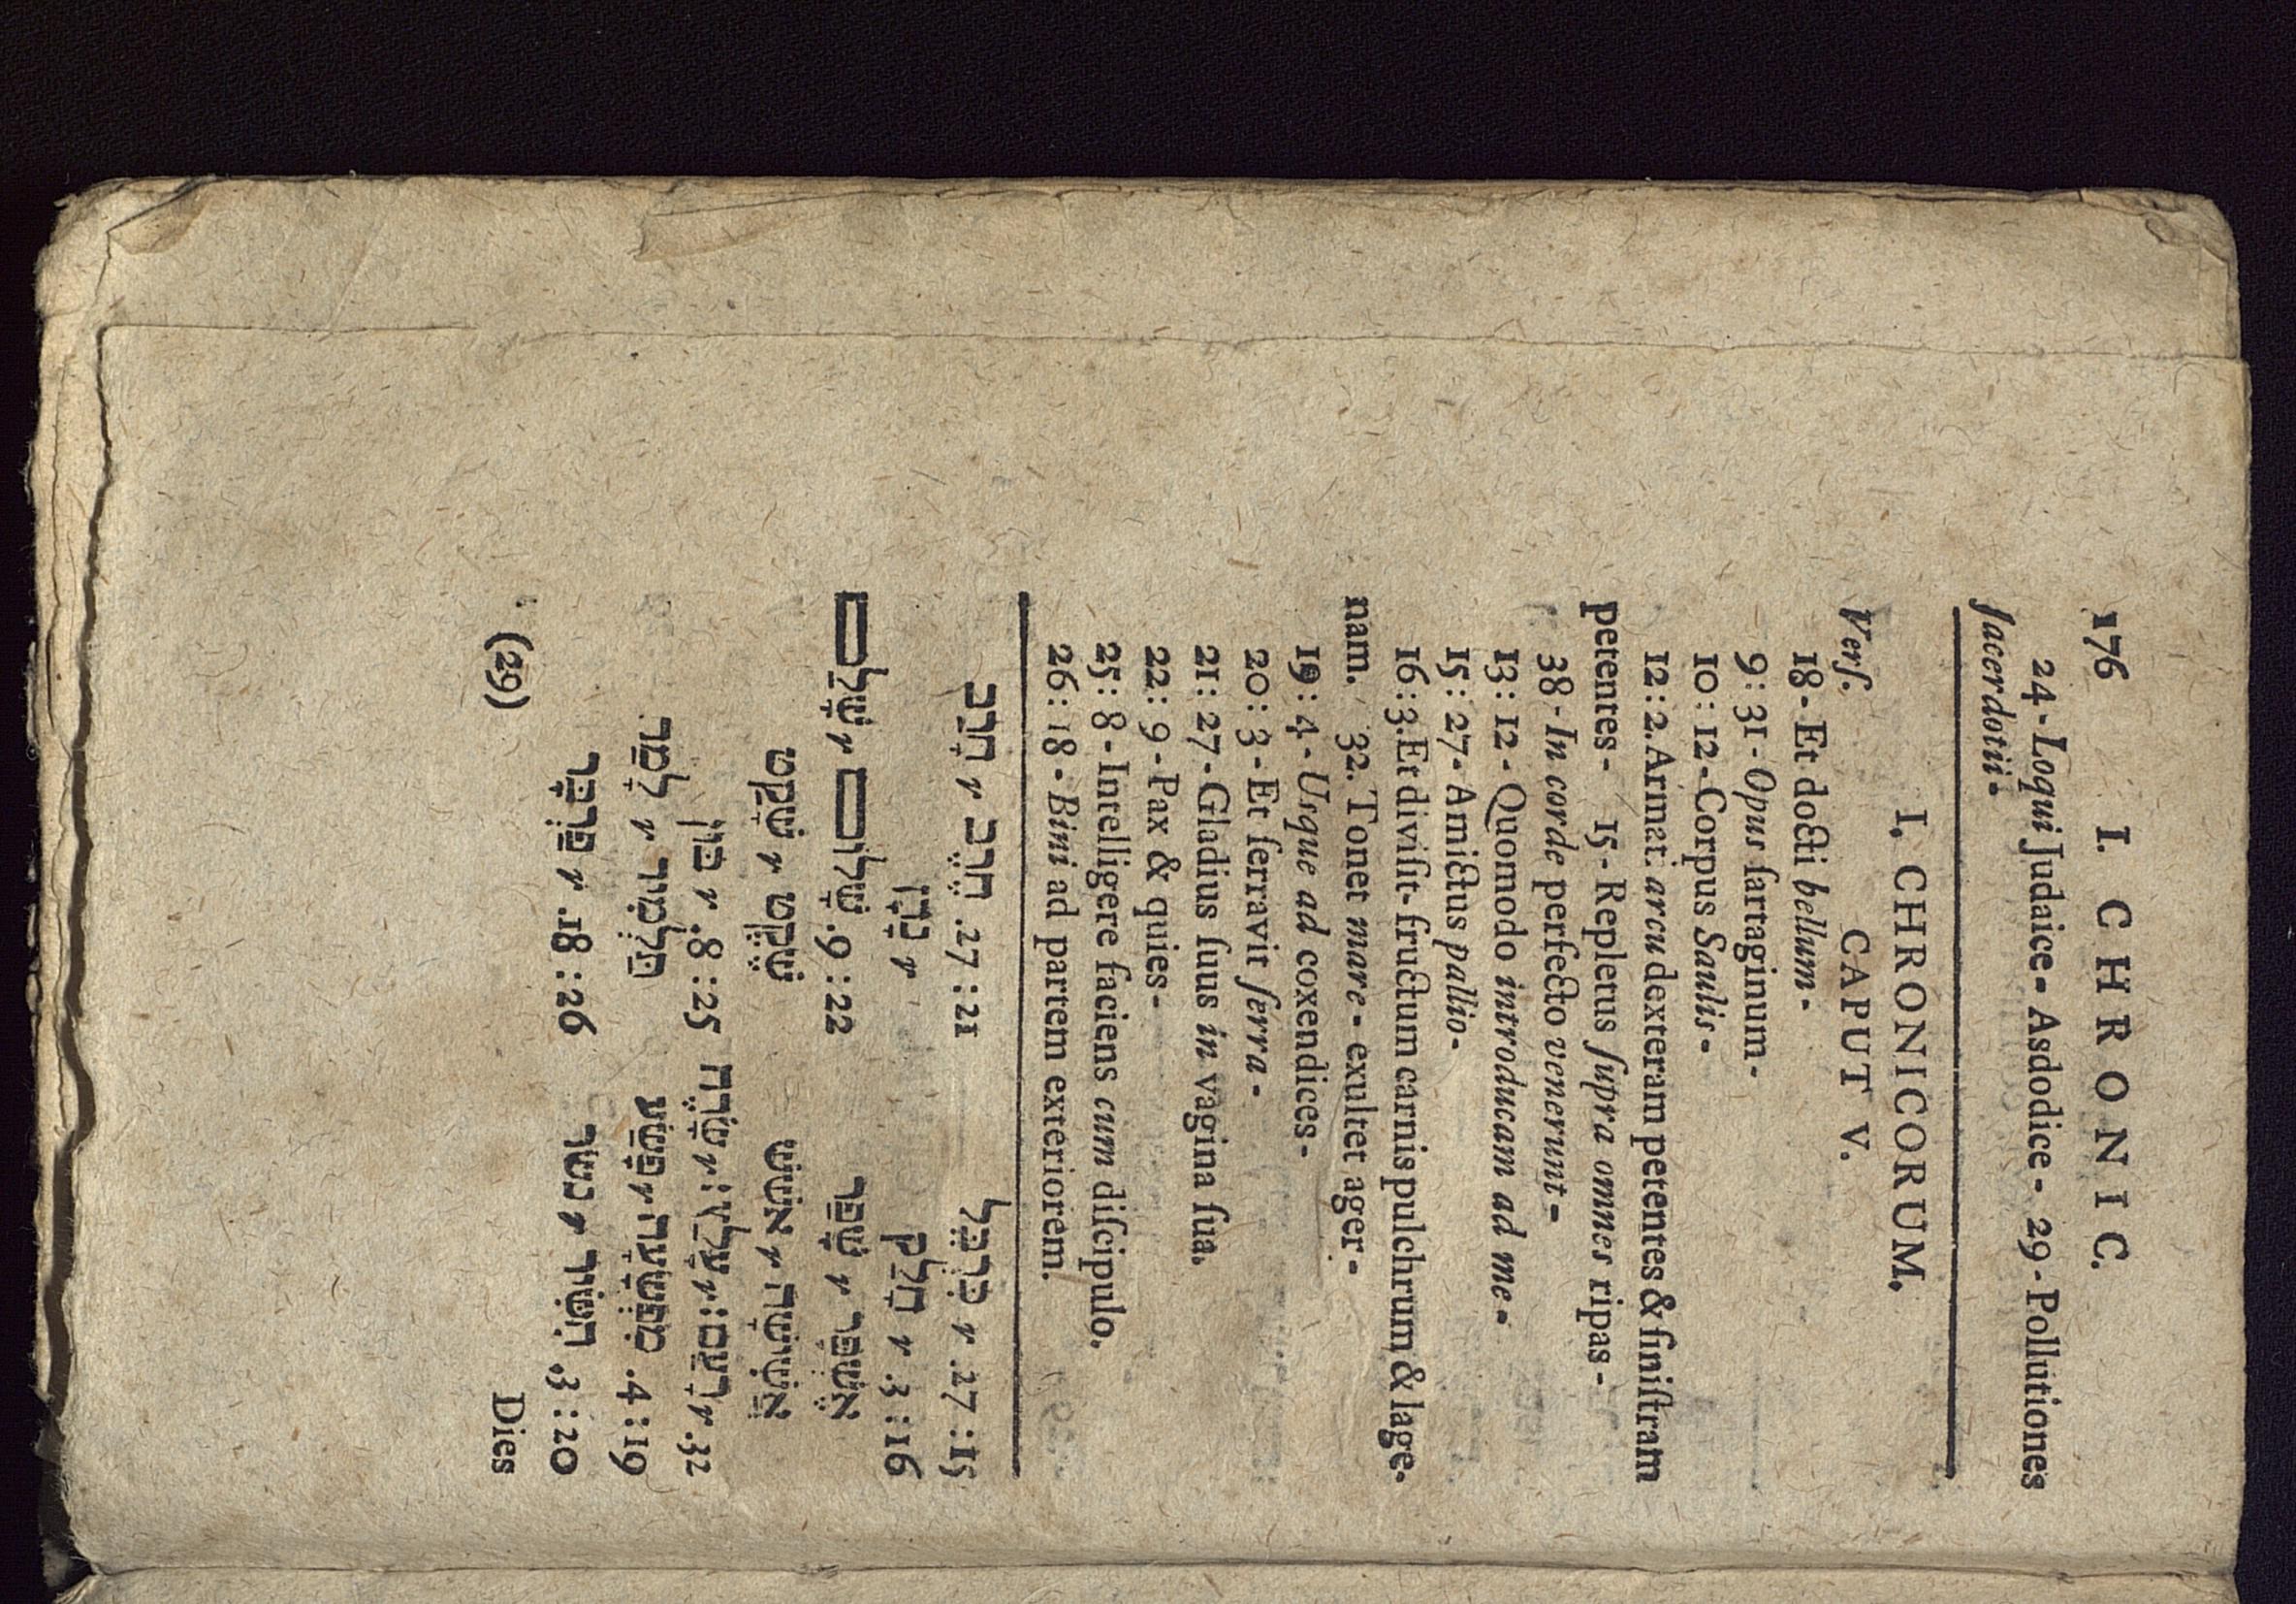 176 I. CHRONIC.
24-Loqui Judaice- Asdodice- 29-Pollutiones
ſacerdotii-
I. CHRONICORUM.
CAPUT V.
Verſ.
18- Et docti bellum-
9: 31- Opus ſartaginum-
10: 12-Corpus Saulis-
12: 2. Armat. arcu dexteram petentes & ſiniſtram
petentes- 15- Repletus ſupra omnes ripas-
38-In corde perfecto venerunt-
13: 12- Quomodo introducam ad me-
15: 27- Amictus pallio-
16: 3. Et diviſit- fructum carnis pulchrum & lage-
nam. 32. Tonet mare- exultet ager-
19: 4- Uſque ad coxendices-
20: 3- Et ſerravit ſerra-
21: 27-Gladius ſuus in vagina ſua.
22: 9-Pax & quies-
25: 8-Intelligere faciens cum diſcipulo.
26: 18- Bini ad partem exteriorem.
15: 27. כרבל
21: 27. חרב חרב
16: 3. חלק
נדן
אשפר שפר
22: 9. שלום שלם
אשישה אשש
שקט שקט
32. רעם עלץ שדה
25: 8. בון
19: 4. מפשעה פשע
תלמיד למד
20: 3. השיר נשר
26: 18. פרבר
(29) Dies